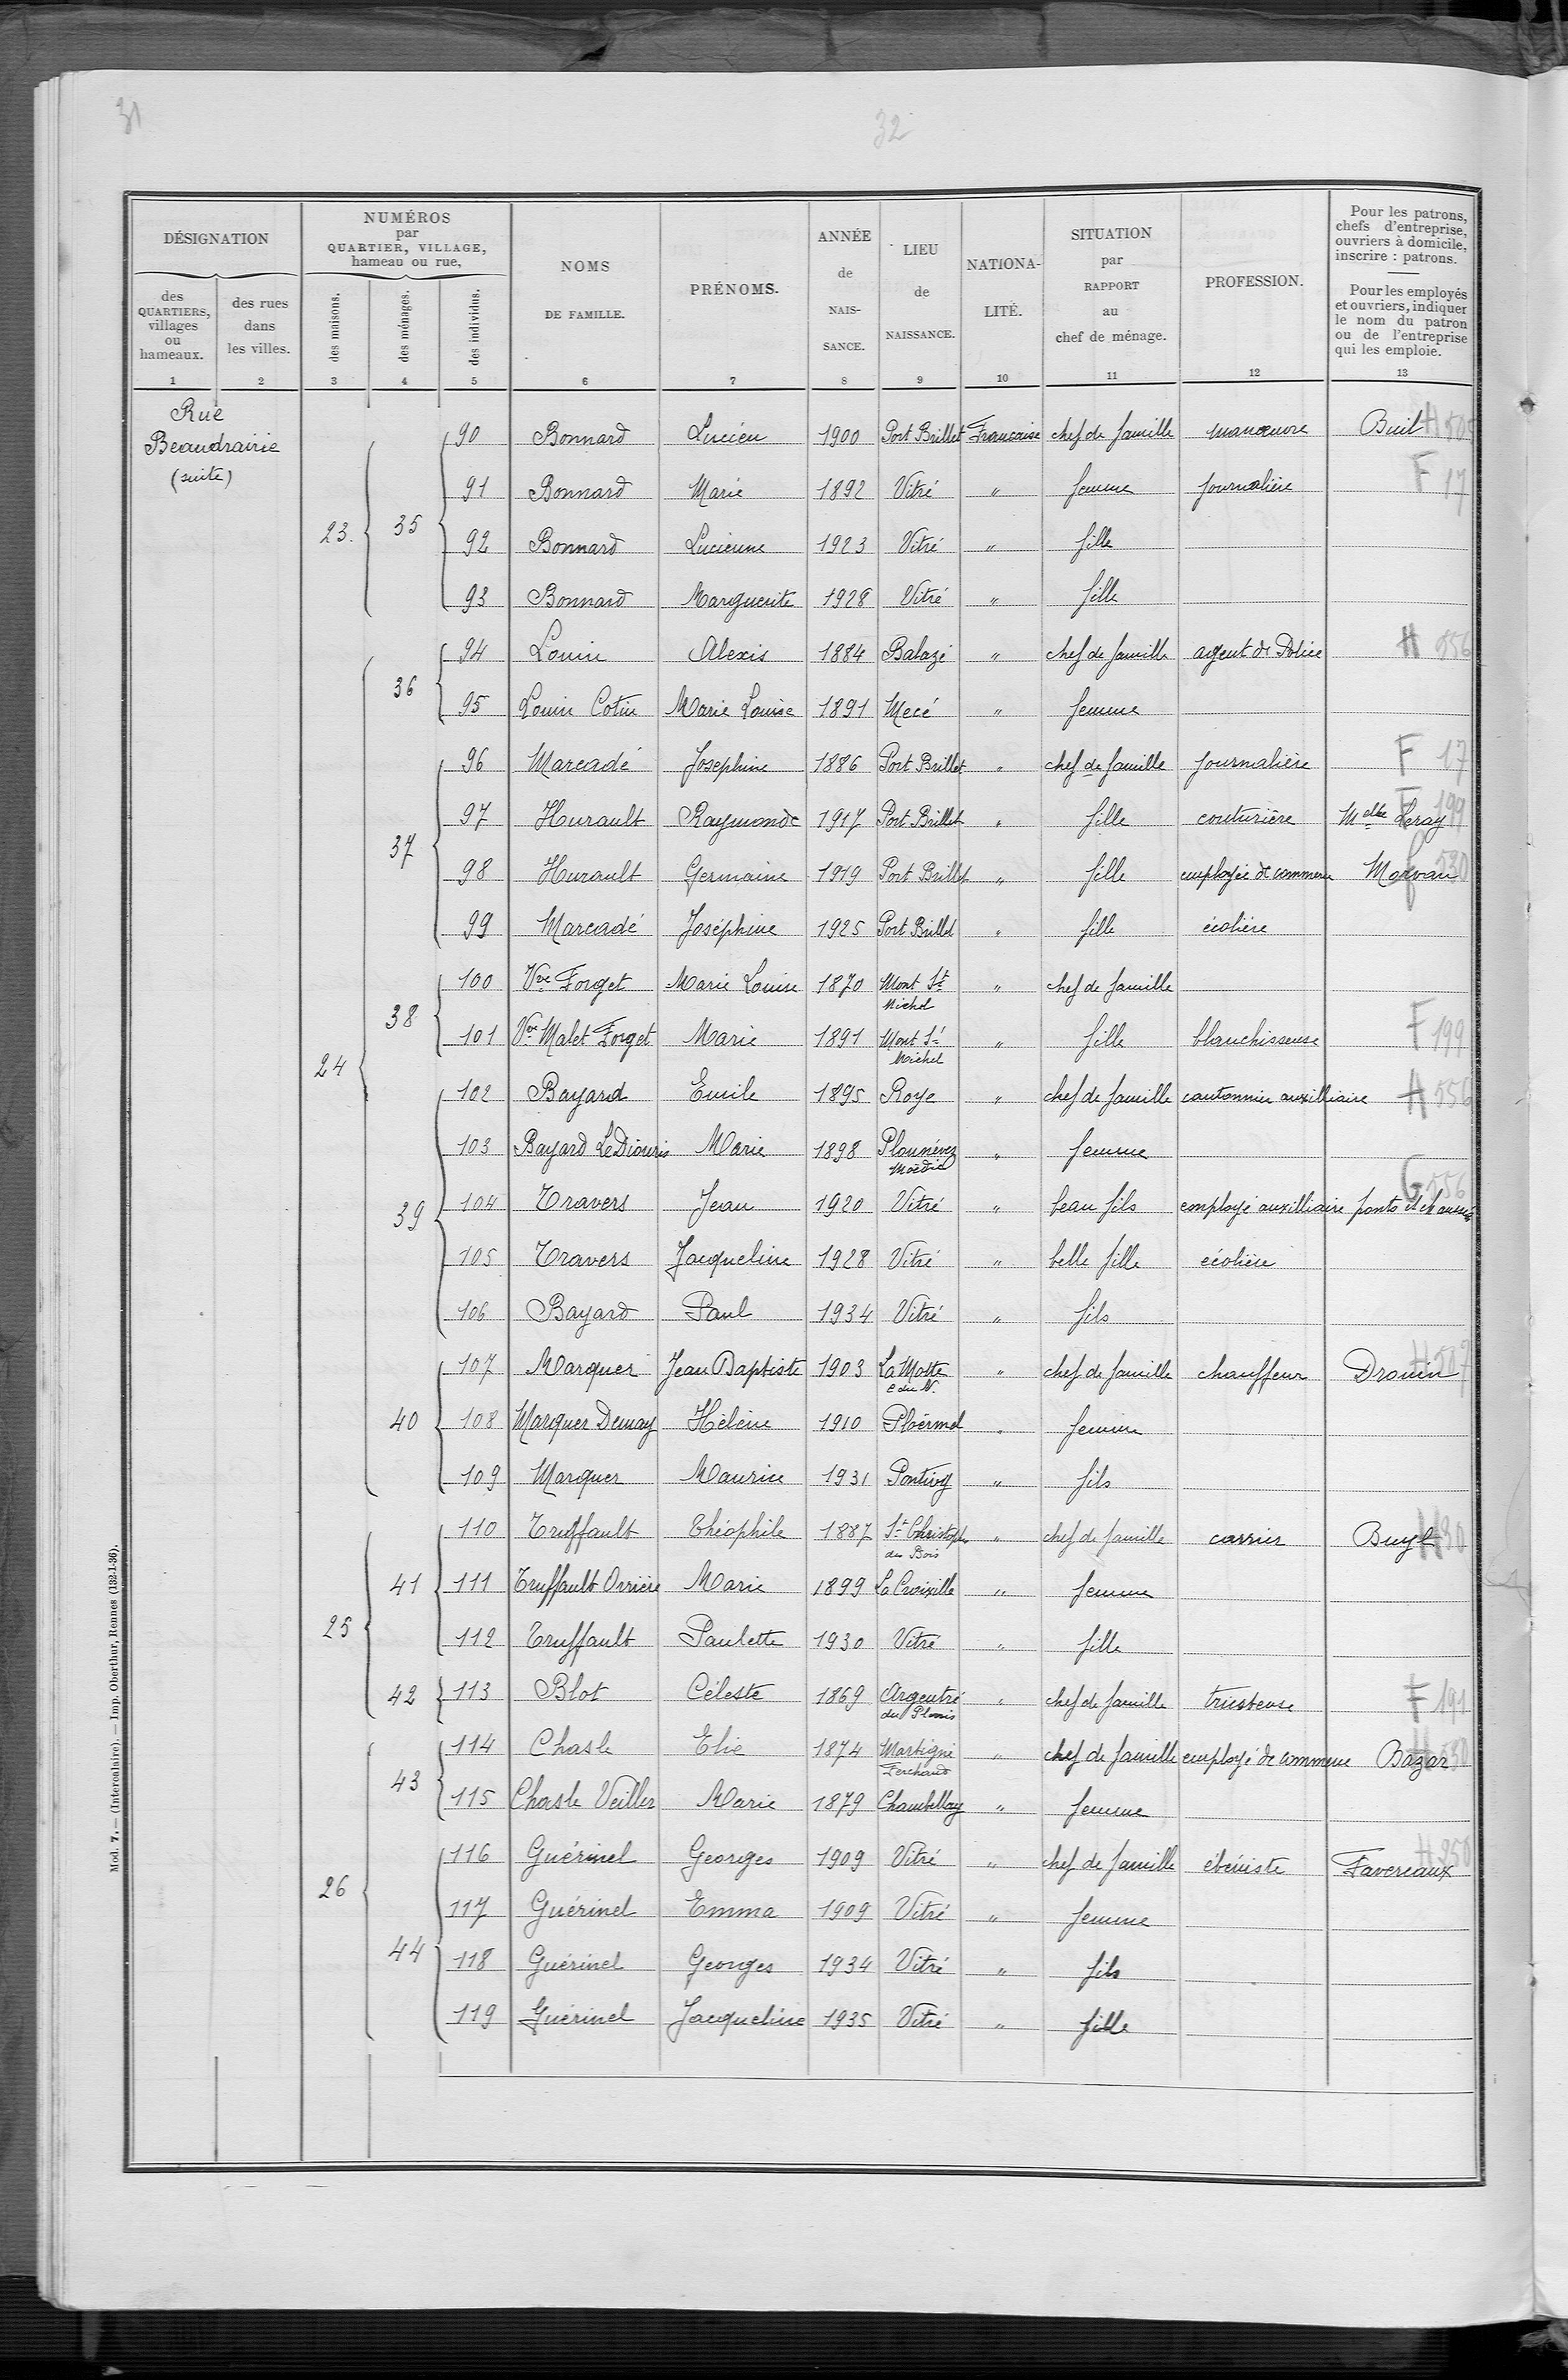 31
32
DÉSIGNATION
des QUARTIERS, villages ou hameaux.
des rues dans les villes.
NUMÉROS par QUARTIER, VILLAGE, hameau ou rue,
des maisons.
des ménages.
des individus.
NOMS DE FAMILLE.
PRÉNOMS.
ANNÉE de NAIS-SANCE.
LIEU de NAISSANCE.
NATIONA-LITÉ.
SITUATION par RAPPORT au chef de ménage.
PROFESSION.
Pour les patrons, chefs d'entreprise, ouvriers à domicile, inscrire : patrons.
Pour les employés et ouvriers, indiquer le nom du patron ou de l'entreprise qui les emploie.
1 2 3 4 5 6 7 8 9 10 11 12 13
Rue
Beaudrairie
(suite)
23. 35
90 Bonnard Lucien 1900 Port Brillet Française chef de famille manœuvre Buil
91 Bonnard Marie 1892 Vitré " femme journalière F 17
92 Bonnard Lucienne 1923 Vitré " fille
93 Bonnard Marguerite 1928 Vitré " fille
24 36
94 Louin Alexis 1884 Balazé " chef de famille agent de Police H 556
95 Louin Cotin Marie Louise 1891 Mecé " femme
37
96 Marcadé Joséphine 1886 Port Brillet " chef de famille journalière F 17
97 Hurault Raymonde 1917 Port Brillet " fille couturière Melle Leray F 199
98 Hurault Germaine 1919 Port Brillet " fille employée de commerce Morvan 530
99 Marcadé Joséphine 1925 Port Brillet " fille écolière
38
100 Vve Forget Marie Louise 1870 Mont St Michel " chef de famille
101 Vve Malet Forget Marie 1891 Mont St Michel " fille blanchisseuse F 199
39
102 Bayard Emile 1895 Roye " chef de famille cantonnier auxilliaire H 556
103 Bayard Le Diouris Marie 1898 Plounévez Moëdic " femme
104 Travers Jean 1920 Vitré " beau fils employé auxilliaire ponts et chaussées G 556
105 Travers Jacqueline 1928 Vitré " belle fille écolière
106 Bayard Paul 1934 Vitré " fils
40
107 Marquer Jean Baptiste 1903 La Motte C du N. " chef de famille chauffeur Drouin H 507
108 Marquer Demay Hélène 1910 Ploërmel " femme
109 Marquer Maurice 1931 Pontivy " fils
25 41
110 Truffault Théophile 1887 St Christophe des Bois " chef de famille carrier Buyl H30
111 Truffault Orrière Marie 1899 La Croixille " femme
112 Truffault Paulette 1930 Vitré " fille
42
113 Blot Céleste 1869 Argentré du Plessis " chef de famille tricoteuse F 191
26 43
114 Chasle Elie 1874 Martigné Ferchaud " chef de famille employé de commerce Bazar
115 Chasle Veiller Marie 1879 Chambellay " femme
44
116 Guérinel Georges 1909 Vitré " chef de famille ébéniste Favereaux H 350
117 Guérinel Emma 1909 Vitré " femme
118 Guérinel Georges 1934 Vitré " fils
119 Guérinel Jacqueline 1935 Vitré " fille
Mod. 7. — (Intercalaire). — Imp. Oberthur, Rennes (132-1-36).